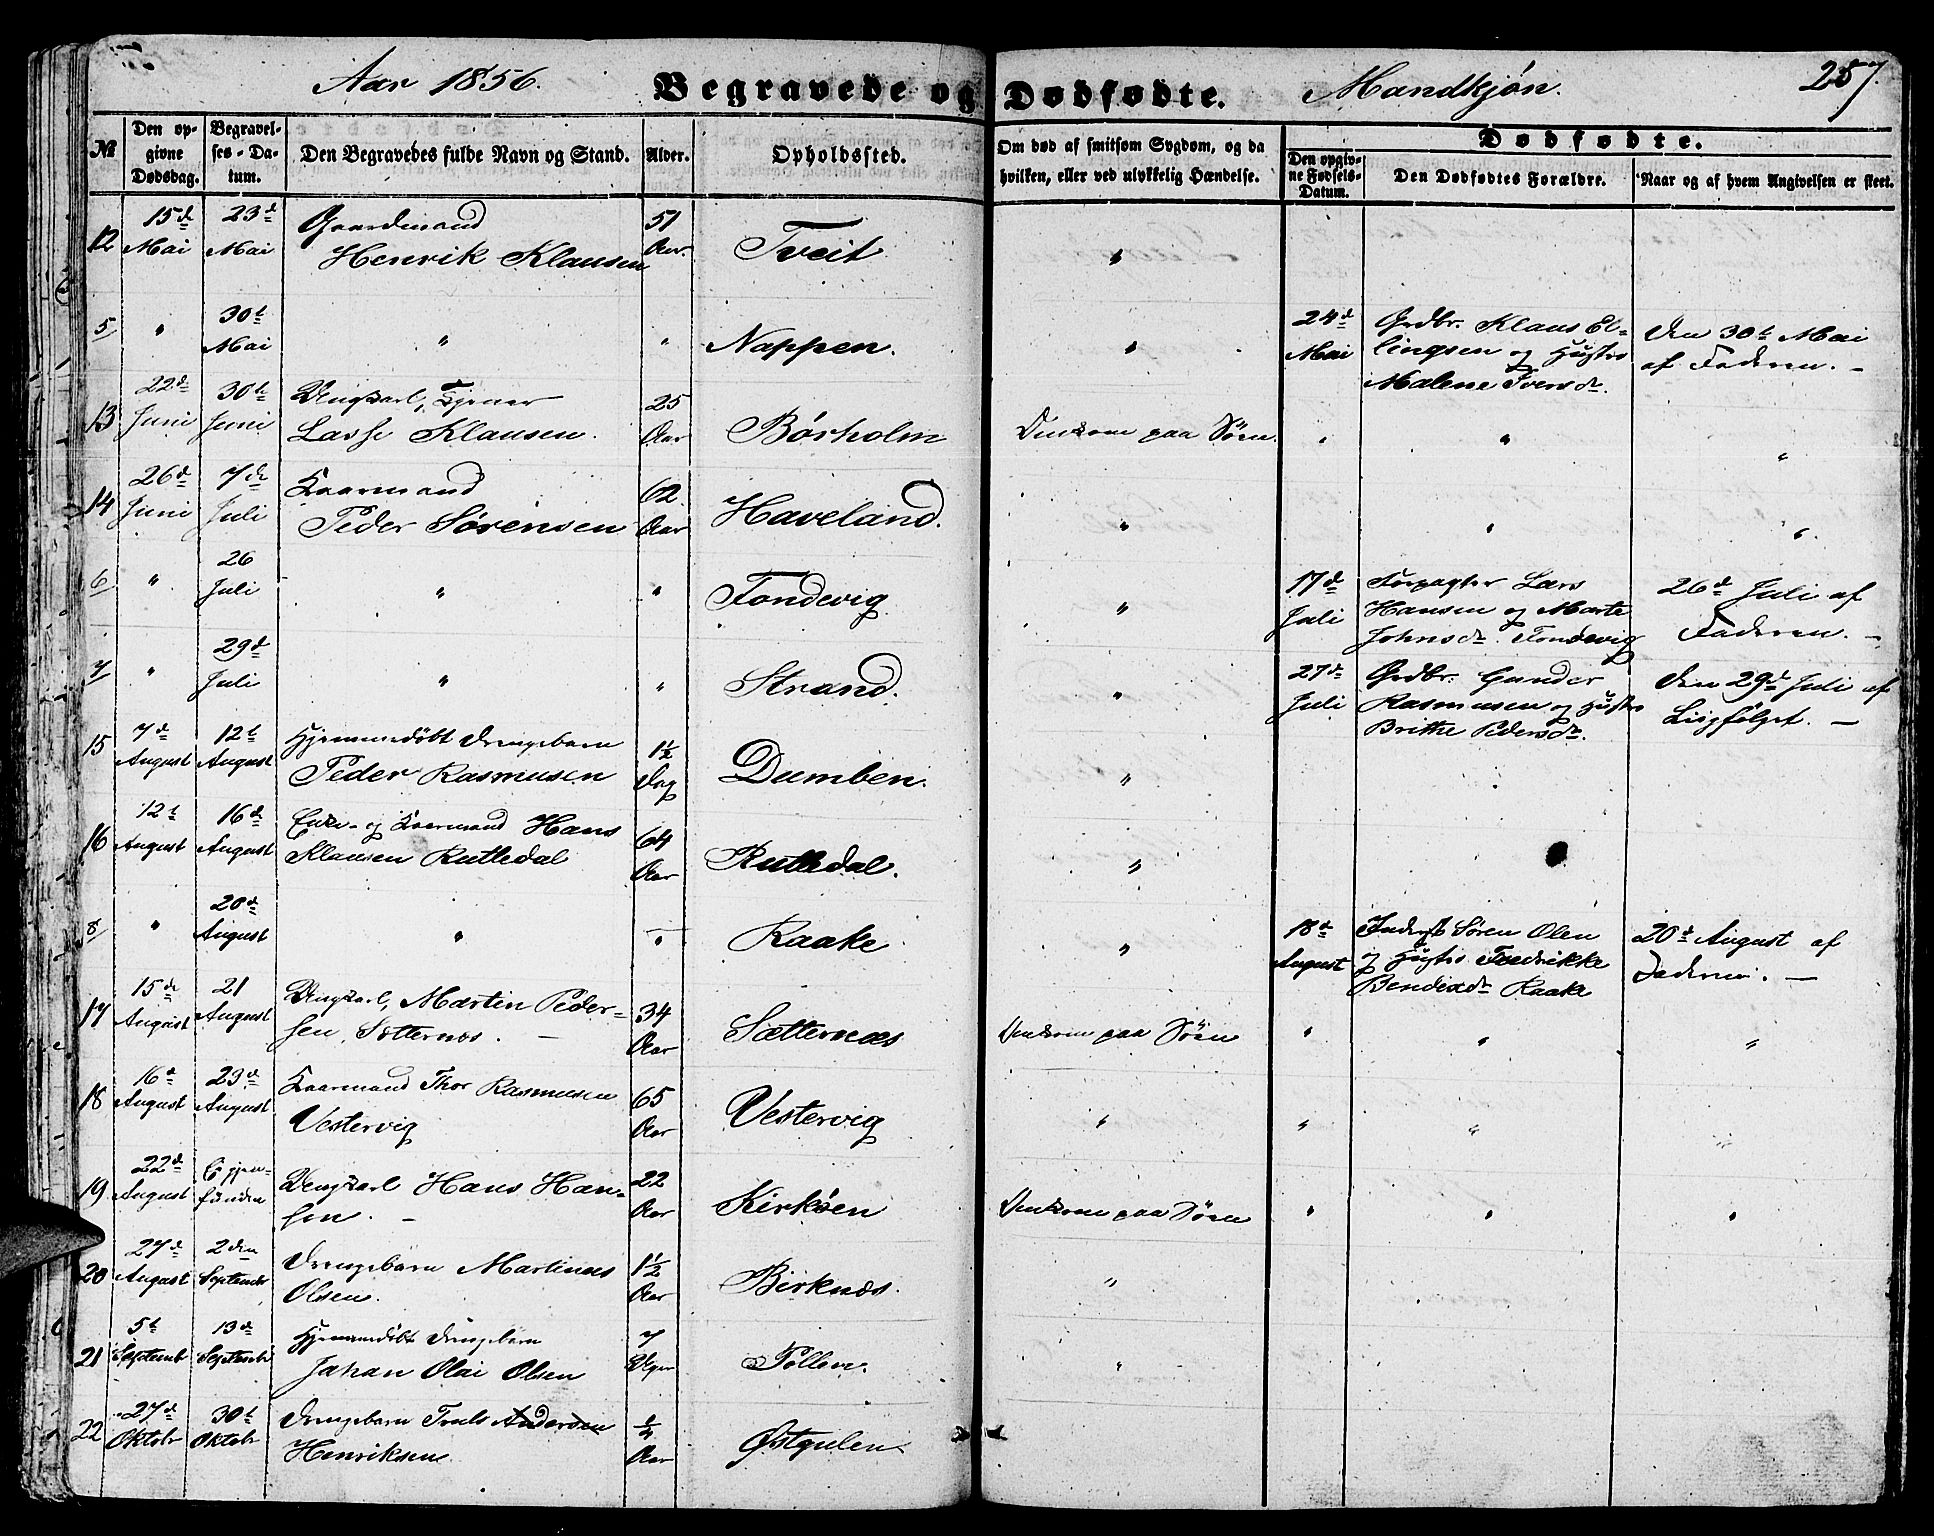 Aar 1856. Begravede og Dødfødte. Mandkjøn. 257.
№ Den opgivne Dødsdag. Begravelses-Datum. Den Begravedes fulde Navn og Stand. Alder. Opholdssted. Om død af smitsom Sygdom, og da hvilken, eller ved ulykkelig Hændelse. Dødfødte.
Den opgivne Fødsels-Datum. Den Dødfødtes Forældre. Naar og af hvem Angivelsen er skeet.
12 15d Mai 23d Mai Gaardmand Henrik Klausen 51 Aar. Tveit "
5 " 30t Mai " " Nappen. " 24d Mai Grdbr. Klaus El-
lingsen og Hustro
Malene Iversdr. Den 30t Mai
af Faderen. -
13 22d Juni 30t Juni Ungkarl, Tjener
Lasse Klausen. 25 Aar Børholm Omkom paa Søen. " " "
14 26d Juni 7de Juli Kaarmand
Peder Sørensen 62 Aar Haveland. " " "
6 " 26 Juli " " Tondevig " 17d Juli Forpagter Lars
Hansen og Marte
Johnsdr. Tondevig 26d Juli af
Faderen. -
7 " 29d Juli " " Strand. " 27d Juli Grdbr. Gunder
Rasmusen og Hustro
Brithe Pedersdr. Den 29d Juli af
Ligfølget. -
15 7d August 12t August Hjemmedøbt Drengebarn
Peder Rasmusen 1½ Dag Dumben. "
16 12t August 16d August Enke- og Kaarmand Hans
Klausen Rutledal 64 Aar Rutledal. "
8 " 20d August " " Raake " 18d August Inderst Søren Olsen
og Hustro Fredrikke
Bendixdr Raake 20d August af
Faderen. -
17 15d August 21 August Ungkarl, Martin Peder-
sen, Sætternæs. - 34 Aar Sætternæs Omkom paa Søen " " "
18 16d August 23d August Kaarmand Thor Rasmusen
Vestervig 65 Aar Vestervig " " " "
19 22d August Ei gjen-
funden Ungkarl Hans Han-
sen. - 22 Aar Kirkøen Omkom paa Søen " " "
20 27d August 2den September Drengebarn Martinus
Olsen. 1½ Aar Birknæs. "
21 5t Septemb 13d Septembr Hjemmedøbt Drengebarn
Johan Olai Olsen 7 Uger Pollen. "
22 27d Oktobr 30t Oktobr Drengebarn Truls Andersen
Henriksen. ¼ Aar Østgulen